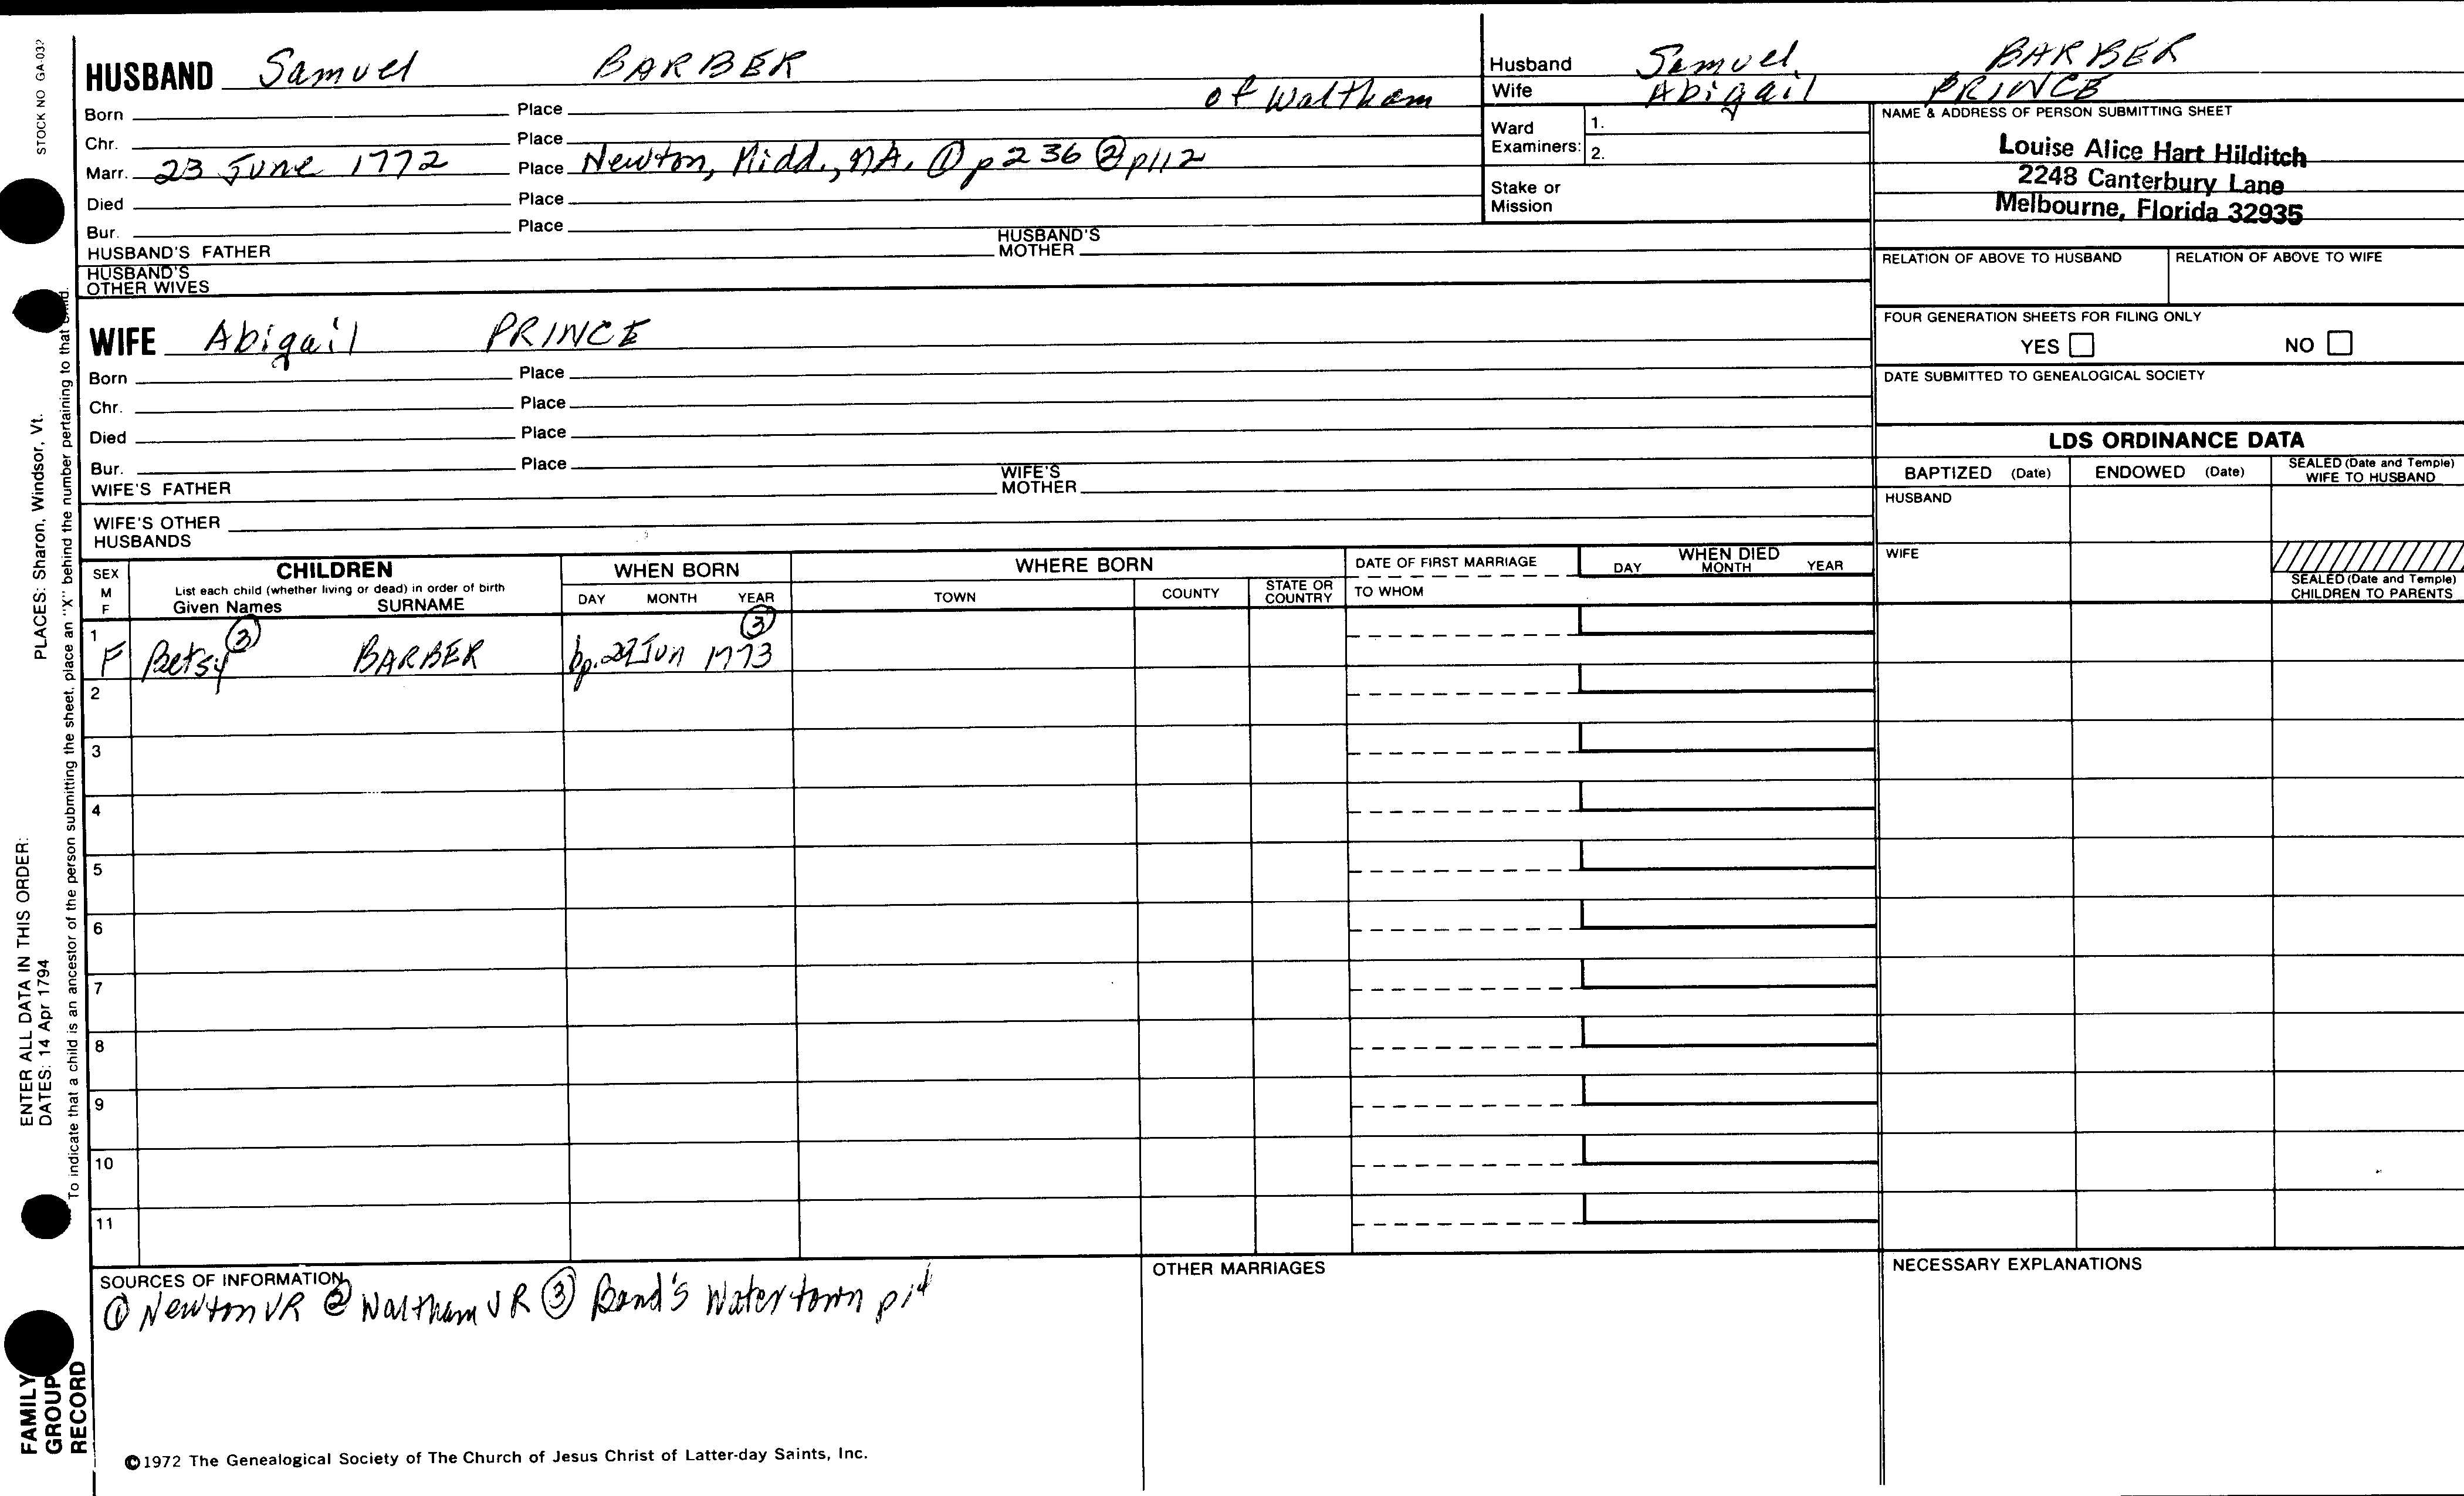 STOCK NO GA-032
HUSBAND Samuel BARBER
Born Place of Waltham
Chr. Place
Marr. 23 June 1772 Place Newton, Midd., MA. ① p 236 ② p112
Died Place
Bur. Place
HUSBAND'S FATHER HUSBAND'S MOTHER
HUSBAND'S OTHER WIVES
WIFE Abigail PRINCE
Born Place
Chr. Place
Died Place
Bur. Place
WIFE'S FATHER WIFE'S MOTHER
WIFE'S OTHER HUSBANDS
Husband Samuel BARBER
Wife Abigail PRINCE
Ward Examiners: 1.
2.
Stake or Mission
NAME & ADDRESS OF PERSON SUBMITTING SHEET
Louise Alice Hart Hilditch
2248 Canterbury Lane
Melbourne, Florida 32935
RELATION OF ABOVE TO HUSBAND RELATION OF ABOVE TO WIFE
FOUR GENERATION SHEETS FOR FILING ONLY
YES NO
DATE SUBMITTED TO GENEALOGICAL SOCIETY
LDS ORDINANCE DATA
BAPTIZED (Date) ENDOWED (Date) SEALED (Date and Temple) WIFE TO HUSBAND
HUSBAND
WIFE
SEALED (Date and Temple) CHILDREN TO PARENTS
SEX M F
CHILDREN
List each child (whether living or dead) in order of birth
Given Names SURNAME
WHEN BORN
DAY MONTH YEAR
WHERE BORN
TOWN COUNTY STATE OR COUNTRY
DATE OF FIRST MARRIAGE
TO WHOM
WHEN DIED
DAY MONTH YEAR
1 F Betsy ③ BARBER bp. 27 Jun 1773 ③
2
3
4
5
6
7
8
9
10
11
SOURCES OF INFORMATION
① Newton VR ② Waltham VR ③ Bond's Watertown p14
OTHER MARRIAGES
NECESSARY EXPLANATIONS
©1972 The Genealogical Society of The Church of Jesus Christ of Latter-day Saints, Inc.
ENTER ALL DATA IN THIS ORDER:
DATES: 14 Apr 1794 PLACES: Sharon, Windsor, Vt.
To indicate that a child is an ancestor of the person submitting the sheet, place an "X" behind the number pertaining to that child.
FAMILY
GROUP
RECORD